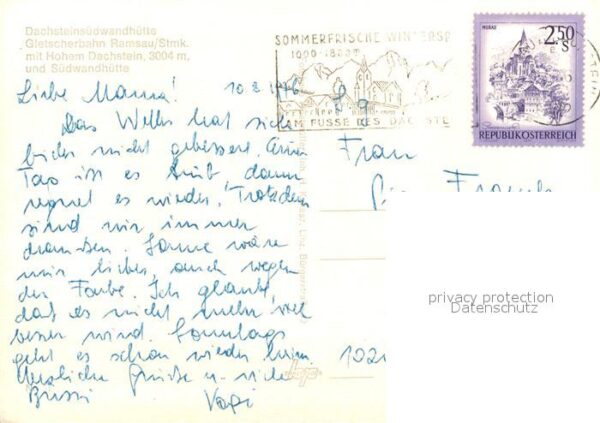 Dachsteinsüdwandhütte
Gletscherbahn Ramsau/Stmk.
mit Hohem Dachstein, 3004 m,
und Südwandhütte
SOMMERFRISCHE WINTERSP
1000-
AM FUSSE DES DACHSTE
MURAU
2.50
S
REPUBLIK ÖSTERREICH
Liebe Mama! 10.8.1976
Das Wetter hat sich
leider nicht gebessert. Einen
Tag ist es trüb, dann
regnet es wieder. Trotzdem
sind wir immer
draussen. Sonne wäre
mir lieber, auch wegen
der Farbe. Ich glaube,
daß es nicht mehr viel
besser wird. Sonntags
geht es schon wieder heim.
Herzliche Grüße u. viele
Bussi
Frau
102
privacy protection
Datenschutz